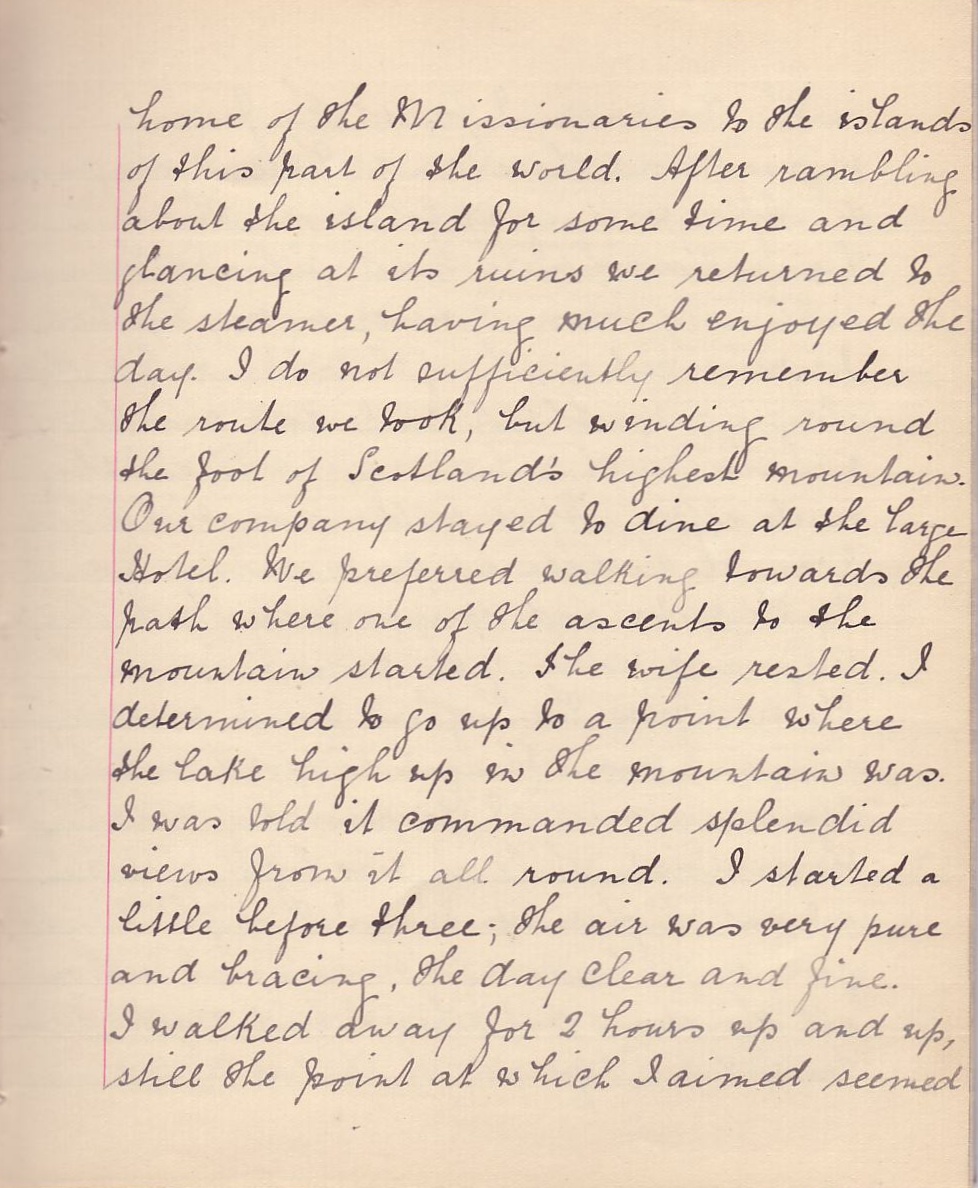 home of the Missionaries to the islands
of this part of the world. After rambling
about the island for some time and
glancing at its ruins we returned to
the steamer, having much enjoyed the
day. I do not sufficiently remember
the route we took, but winding round
the foot of Scotland's highest mountain.
Our company stayed to dine at the large
Hotel. We preferred walking towards the
path where one of the ascents to the
mountain started. The wife rested. I
determined to go up to a point where
the lake high up in the mountain was.
I was told it commanded splendid
views from it all round. I started a
little before three; the air was very pure
and bracing, the day clear and fine.
I walked away for 2 hours up and up,
still the point at which I aimed seemed